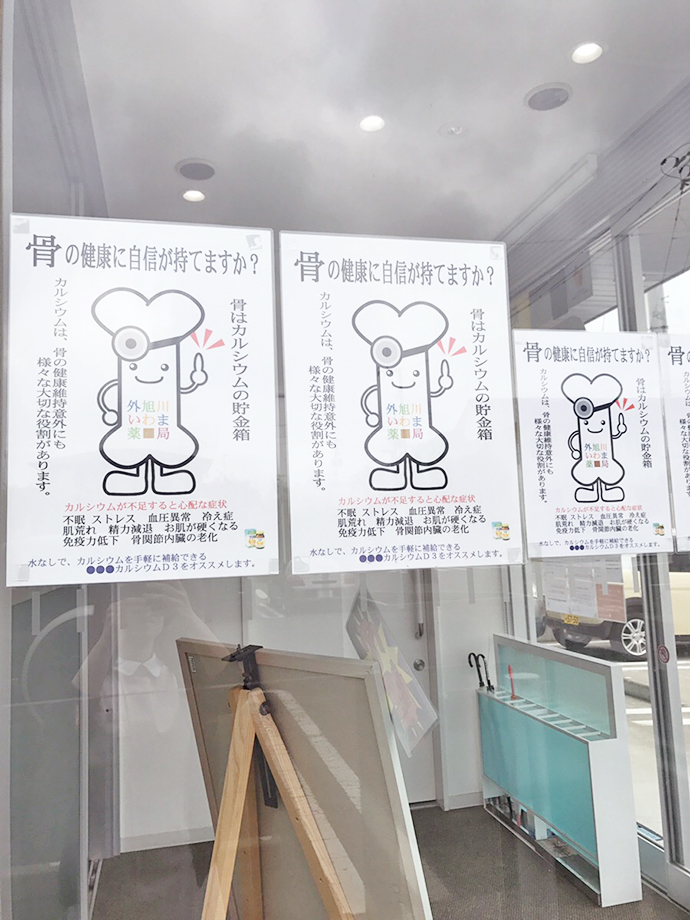 骨の健康に自信が持てますか？
骨はカルシウムの貯金箱
カルシウムは、骨の健康維持意外にも
様々な大切な役割があります。
外旭川
いわま
薬■局
カルシウムが不足すると心配な症状
不眠 ストレス 血圧異常 冷え症
肌荒れ 精力減退 お肌が硬くなる
免疫力低下 骨関節内臓の老化
水なしで、カルシウムを手軽に補給できる
●●●カルシウムD3をオススメします。
骨の健康に自信が持てますか？
骨はカルシウムの貯金箱
カルシウムは、骨の健康維持意外にも
様々な大切な役割があります。
外旭川
いわま
薬■局
カルシウムが不足すると心配な症状
不眠 ストレス 血圧異常 冷え症
肌荒れ 精力減退 お肌が硬くなる
免疫力低下 骨関節内臓の老化
水なしで、カルシウムを手軽に補給できる
●●●カルシウムD3をオススメします。
骨の健康に自信が持てますか？
骨はカルシウムの貯金箱
カルシウムは、骨の健康維持意外にも
様々な大切な役割があります。
外旭川
いわま
薬■局
カルシウムが不足すると心配な症状
不眠 ストレス 血圧異常 冷え症
肌荒れ 精力減退 お肌が硬くなる
免疫力低下 骨関節内臓の老化
水なしで、カルシウムを手軽に補給できる
●●●カルシウムD3をオススメします。
骨